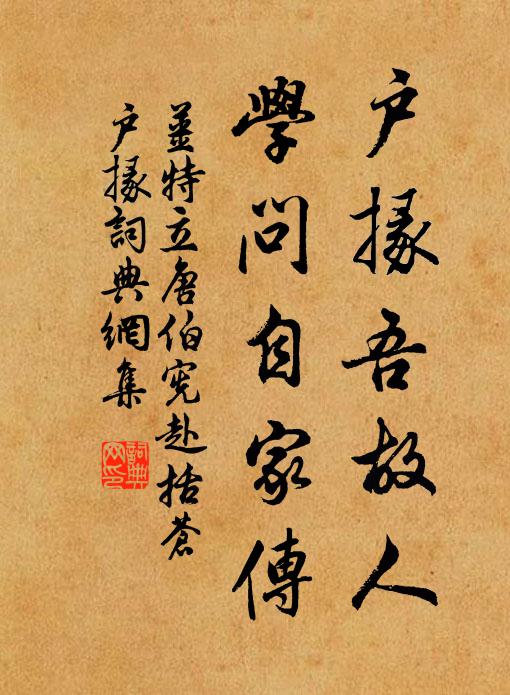 户掾吾故人
學問自家傳
姜特立唐伯宪赴括蒼
户掾詞典網集
詞典网印